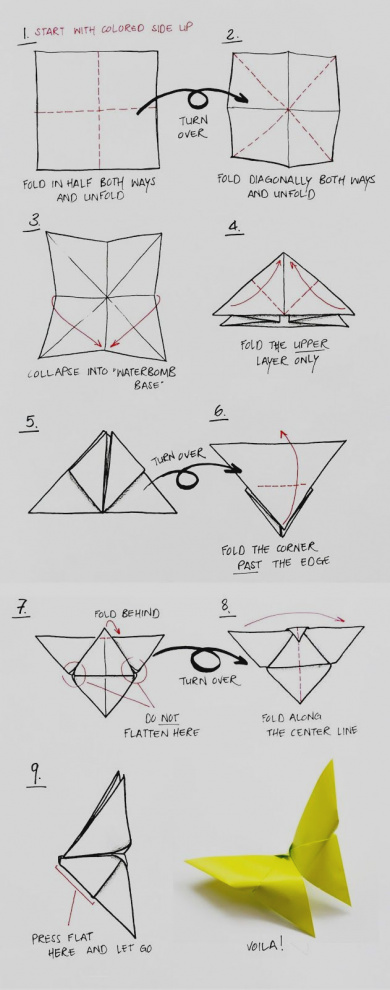 1. START WITH COLORED SIDE UP
FOLD IN HALF BOTH WAYS
AND UNFOLD
TURN
OVER
2.
FOLD DIAGONALLY BOTH WAYS
AND UNFOLD
3.
COLLAPSE INTO "WATERBOMB
BASE"
4.
FOLD THE UPPER
LAYER ONLY
5.
TURN OVER
6.
FOLD THE CORNER
PAST THE EDGE
7.
FOLD BEHIND
DO NOT
FLATTEN HERE
TURN OVER
8.
FOLD ALONG
THE CENTER LINE
9.
PRESS FLAT
HERE AND LET GO
VOILA!